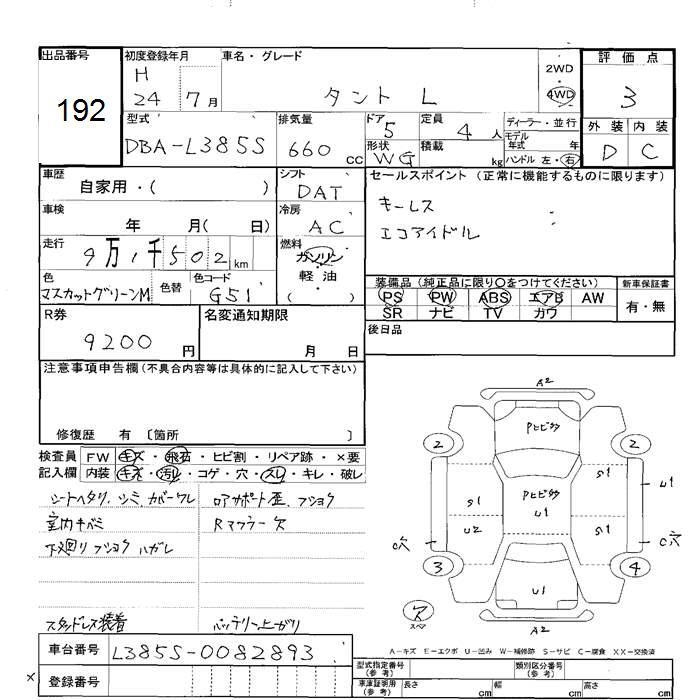 出品番号
192
初度登録年月
H
24 7月
車名・グレード
タント L
2WD
4WD
評価点
3
外装 内装
D C
型式
DBA-L385S
排気量
660 cc
ドア 5
形状 WG
定員
4 人
積載
kg
ディーラー・並行
モデル
年式 年
ハンドル 左・右
車歴
自家用・( )
シフト
DAT
セールスポイント (正常に機能するものに限ります)
キーレス
エコアイドル
車検
年 月( 日)
冷房
AC
走行
9万1千502km
燃料
ガソリン
軽油
( )
色
マスカットグリーンM
色替
色コード
G51
装備品 (純正品に限り○をつけてください)
PS PW ABS エアB AW
SR ナビ TV カワ
新車保証書
有・無
R券
9200 円
名変通知期限
月 日
後日品
注意事項申告欄 (不具合内容等は具体的に記入して下さい)
修復歴 有 〔箇所 〕
検査員 FW キズ・飛石・ヒビ割・リペア跡・×要
記入欄 内装 キズ・汚レ・コゲ・穴・スレ・キレ・破レ
シートヘタリ、シミ、カバーワレ
ロアサポート歪、フショク
室内キバミ
Rマフラー欠
下回り フショク ハガレ
スタッドレス装着
バッテリー上がり
A2
PヒビSM
2 2
S1
U1
PヒビSM
U1
S1
U2
S1
C穴
C穴
3 4
U1
ス
スペア
A2
A-キズ E-エクボ U-凹み W-補修跡 S-サビ C-腐食 XX-交換済
車台番号
L385S-0082893
× 登録番号
型式指定番号
(参考)
類別区分番号
(参考)
車庫証明用
(参考)
長さ cm
幅 cm
高さ cm